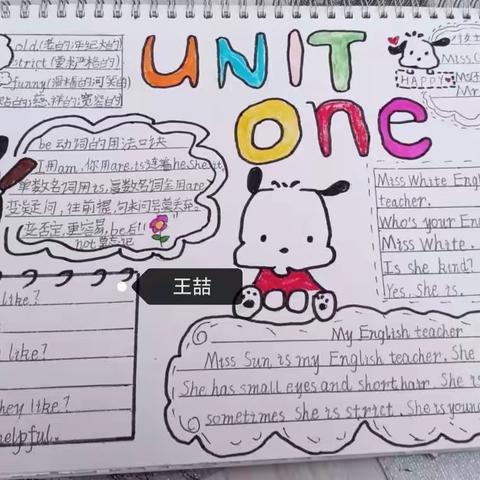 old(老的;年纪大的)
strict(要求严格的)
funny(滑稽的;可笑的)
UNIT
one
HAPPY
Miss
Mr
be 动词的用法口诀
我用am,你用are,is连着he,she,it,
单数名词用is,复数名词全用are
变疑问,往前提,句末问号莫丢弃。
变否定,更容易,be后
not莫忘记
Miss White English
teacher.
Who's your Eng
Miss White.
Is she kind?
Yes, She is.
王喆
like?
like?
hey like?
helpful.
My English teacher
Miss Sun is my English teacher. She
She has small eyes and short hair. She is
sometimes she is strict. She is young